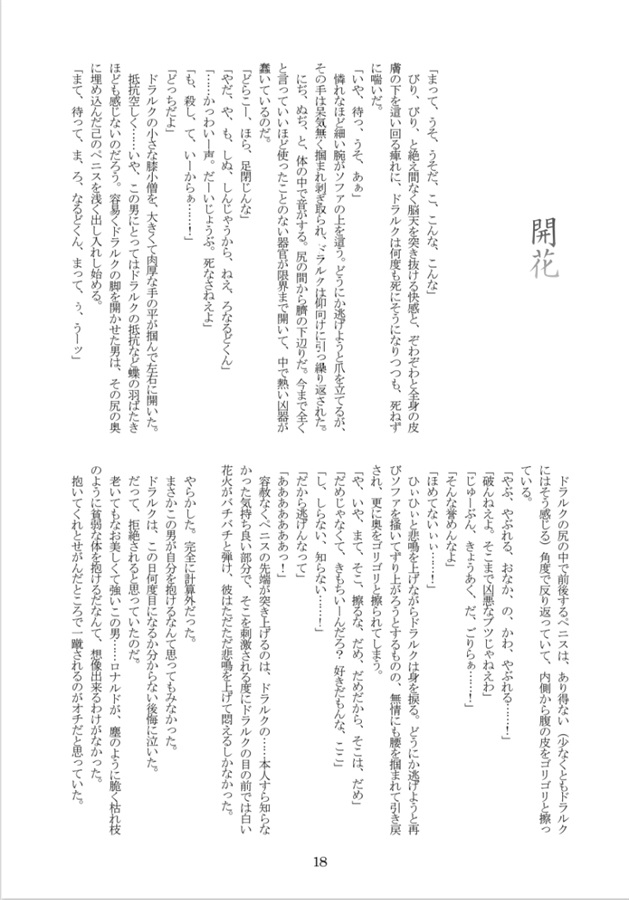 開花
「まって、うそ、うそだ、こ、こんな、こんな」
びり、びり、と絶え間なく脳天を突き抜ける快感と、ぞわぞわと全身の皮
膚の下を這い回る痺れに、ドラルクは何度も死にそうになりつつも、死ねず
に喘いだ。
「いや、待っ、うそ、あぁ」
憐れなほど細い腕がソファの上を這う。どうにか逃げようと爪を立てるが、
その手は呆気無く掴まれ剥ぎ取られ、ドラルクは仰向けに引っ繰り返された。
にぢ、ぬぢ、と、体の中で音がする。尻の間から臍の下辺りだ。今まで全く
と言っていいほど使ったことのない器官が限界まで開いて、中で熱い凶器が
蠢いているのだ。
「どらこー、ほら、足閉じんな」
「やだ、や、も、しぬ、しんじゃうから、ねえ、ろなるどくん」
「……かっわいー声。だーいじょうぶ。死なさねえよ」
「も、殺し、て、いーからぁ……！」
「どっちだよ」
ドラルクの小さな膝小僧を、大きくて肉厚な手の平が掴んで左右に開いた。
抵抗空しく……いや、この男にとってはドラルクの抵抗など蝶の羽ばたき
ほども感じないのだろう。容易くドラルクの脚を開かせた男は、その尻の奥
に埋め込んだ己のペニスを浅く出し入れし始める。
「まて、待って、ま、ろ、なるどくん、まって、ぅ、うーッ」
ドラルクの尻の中で前後するペニスは、あり得ない（少なくともドラルク
にはそう感じる）角度で反り返っていて、内側から腹の皮をゴリゴリと擦っ
ている。
「やぶ、やぶれる、おなか、の、かわ、やぶれる……！」
「破んねえよ。そこまで凶悪なブツじゃねえわ」
「じゅーぶん、きょうあく、だ、ごりらぁ……！」
「そんな誉めんなよ」
「ほめてないぃぃ……！」
ひぃひぃと悲鳴を上げながらドラルクは身を捩る。どうにか逃げようと再
びソファを掻いてずり上がろうとするものの、無情にも腰を掴まれて引き戻
され、更に奥をゴリゴリと擦られてしまう。
「や、いや、まて、そこ、擦るな、だめ、だめだから、そこは、だめ」
「だめじゃなくて、きもちいーんだろ？ 好きだもんな、ここ」
「し、しらない、知らない……！」
「だから逃げんなって」
「ああああああっ！」
容赦なくペニスの先端が突き上げるのは、ドラルクの……本人すら知らな
かった気持ち良い部分で、そこを刺激される度にドラルクの目の前では白い
花火がバチバチと弾け、彼はただただ悲鳴を上げて悶えるしかなかった。
やらかした。完全に計算外だった。
まさかこの男が自分を抱けるなんて思ってもみなかった。
ドラルクは、この日何度目になるか分からない後悔に泣いた。
だって、拒絶されると思っていたのだ。
老いてもなお美しくて強いこの男……ロナルドが、塵のように脆く枯れ枝
のように貧弱な体を抱けるだなんて、想像出来るわけがなかった。
抱いてくれとせがんだところで一蹴されるのがオチだと思っていた。
18